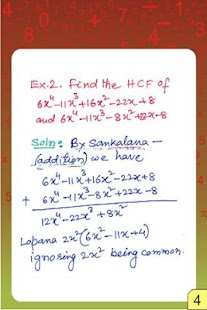 Ex.2. Find the HCF of
6x⁴-11x³+16x²-22x+8
and 6x⁴-11x³-8x²+22x-8
Soln: By Sankalana-
(addition) we have
6x⁴-11x³+16x²-22x+8
+ 6x⁴-11x³-8x²+22x-8
12x⁴-22x³+8x²
Lopana 2x²(6x²-11x+4)
ignoring 2x² being common.
4